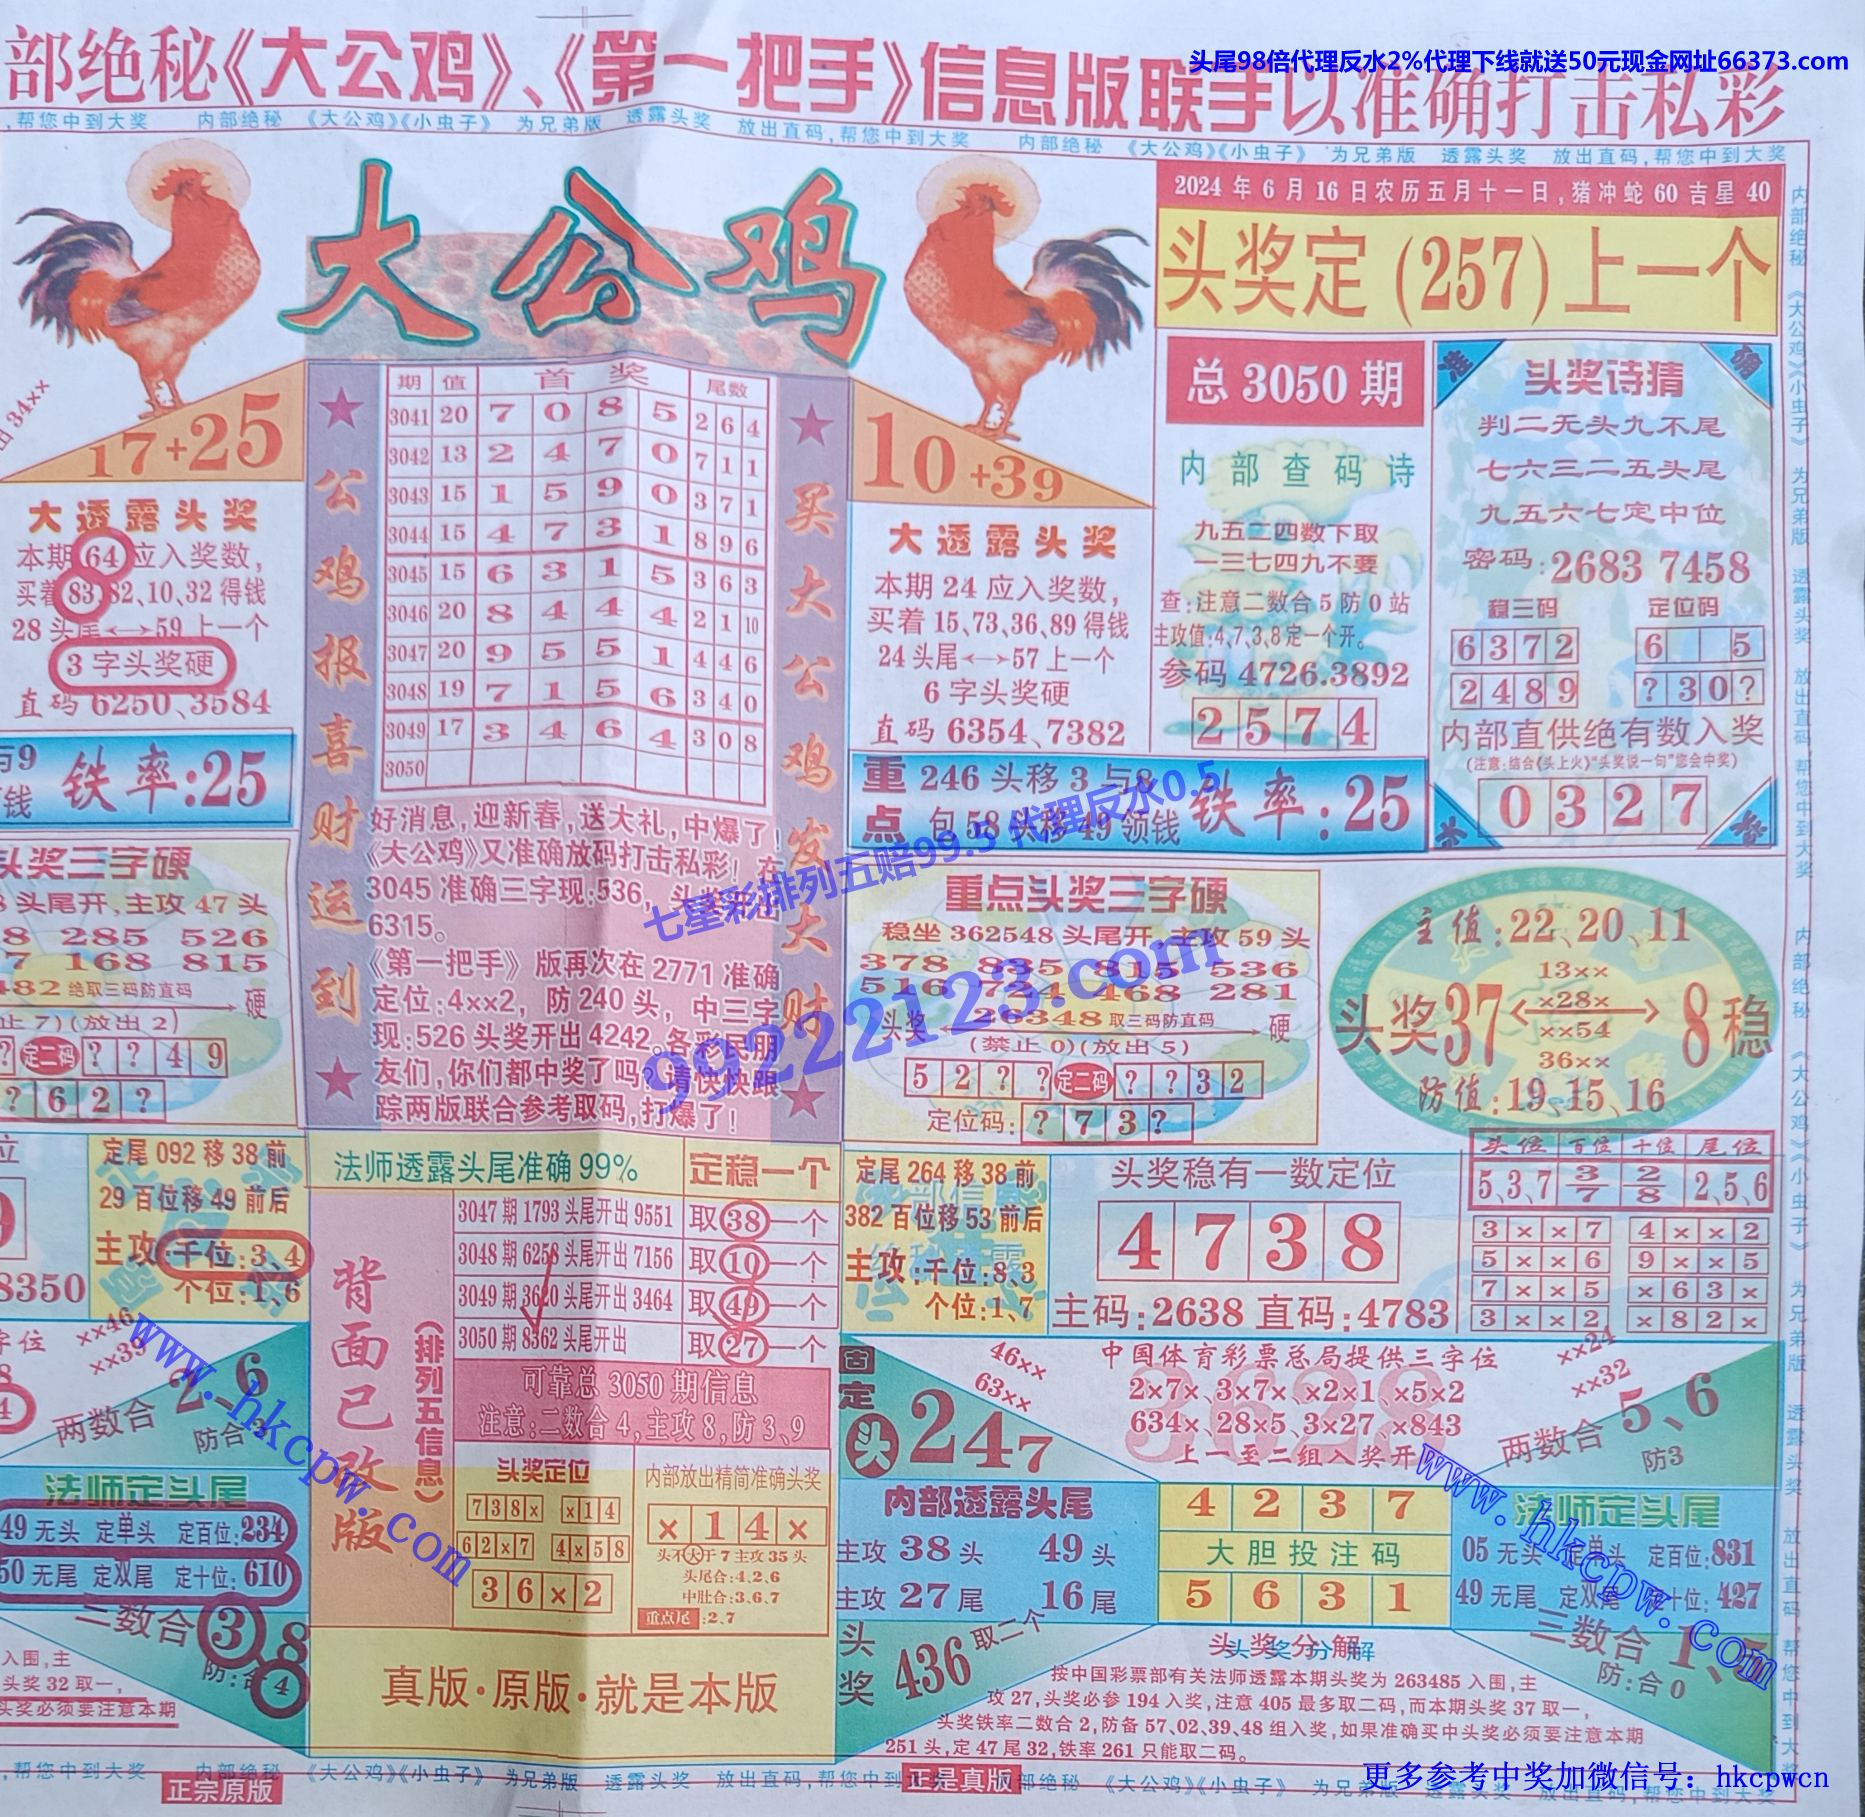 头尾98倍代理反水2%代理下线就送50元现金网址66373.com
部绝秘《大公鸡》、《第一把手》信息版联手以准确打击私彩
,帮您中到大奖 内部绝秘 《大公鸡》《小虫子》 为兄弟版 透露头奖 放出直码,帮您中到大奖 内部绝秘 《大公鸡》《小虫子》 为兄弟版 透露头奖 放出直码,帮您中到大奖
大公鸡
2024年6月16日农历五月十一日,猪冲蛇60吉星40
头奖定(257)上一个
17+25
大透露头奖
本期64应入奖数,
买着83,82、10、32得钱
28头尾←→59上一个
3字头奖硬
直码6250、3584
铁率:25
期 值 首奖 尾数
3041 20 7 0 8 5 2 6 4
3042 13 2 4 7 0 7 1 1
3043 15 1 5 9 0 3 7 1
3044 15 4 7 3 1 8 9 6
3045 15 6 3 1 5 3 6 3
3046 20 8 4 4 4 2 1 10
3047 20 9 5 5 1 4 4 6
3048 19 7 1 5 6 3 4 0
3049 17 3 4 6 4 3 0 8
3050
公鸡报喜财运到
买大公鸡发大财
好消息,迎新春,送大礼,中爆了!
《大公鸡》又准确放码打击私彩!在
3045准确三字现:536,头奖开出
6315。
《第一把手》版再次在2771准确
定位:4××2,防240头,中三字
现:526头奖开出4242。各彩民朋
友们,你们都中奖了吗?请快快跟
踪两版联合参考取码,打爆了!
10+39
大透露头奖
本期24应入奖数,
买着15、73、36、89得钱
24头尾←→57上一个
6字头奖硬
直码6354、7382
重点
246头移3与8
包58头移49领钱
铁率:25
总3050期
内部查码诗
九五二四数下取
一三七四九不要
查:注意二数合5防0站
主攻值:4,7,3,8定一个开。
参码4726.3892
2574
头奖诗猜
判二无头九不尾
七六三二五头尾
九五六七定中位
密码:2683 7458
稳三码 定位码
6372 6 5
2489 ?30?
内部直供绝有数入奖
(注意:结合《头上火》“头奖说一句”您会中奖)
0327
头奖三字硬
头尾开,主攻47头
8 285 526
7 168 815
482绝取三码防直码
硬
(放出2)
? 定二码 ? ? 4 9
? 6 2 ?
重点头奖三字硬
稳坐362548头尾开,主攻59头
378 835 815 536
516 724 468 281
头奖 26348取三码防直码 硬
(禁止0)(放出5)
5 2 ? ? 定二码 ? ? 3 2
定位码: ? 7 3 ?
主值:22、20、11
13××
×28×
××54
36××
头奖37 8稳
防值:19、15、16
七星彩排列五赔99.5 代理反水0.5
99222123.com
定尾092移38前
29百位移49前后
主攻:千位:3、4
个位:1、6
8350
法师透露头尾准确99% 定稳一个
3047期1793头尾开出9551 取38一个
3048期6258头尾开出7156 取10一个
3049期3620头尾开出3464 取49一个
3050期8362头尾开出 取27一个
背面已改版
(排列五信息)
可靠总3050期信息
注意:二数合4,主攻8,防3、9
头奖定位
738× ×14
62×7 4×58
36×2
内部放出精简准确头奖
×14×
头不大于7主攻35头
头尾合:4、2、6
中肚合:3、6、7
重点尾:2、7
真版·原版·就是本版
定尾264移38前
382百位移53前后
主攻:千位:8、3
个位:1、7
头奖稳有一数定位
4738
主码:2638 直码:4783
头位 百位 十位 尾位
5、3、7 3/7 2/8 2、5、6
3××7 4××2
5××6 9××5
7××5 ×63×
3××2 ×82×
××46
字位
两数合2、6
法师定头尾
49无头 定单头 定百位:234
50无尾 定双尾 定十位:610
三数合3、8
入围,主
头奖32取一,
头奖必须要注意本期
固定头247
46××
63××
中国体育彩票总局提供三字位
2×7×、3×7×、×2×1、×5×2
634×、28×5、3×27、×843
上一至二组入奖开
3628
××24
××32
两数合5、6
防3
内部透露头尾
主攻38头 49头
主攻27尾 16尾
4237
大胆投注码
5631
法师定头尾
05无头 定单头 定百位:831
49无尾 定双尾 定十位:427
头奖436取二个
三数合1、
防:合0
头奖分解
按中国彩票部有关法师透露本期头奖为263485入围,主
攻27,头奖必参194入奖,注意405最多取二码,而本期头奖37取一,
头奖铁率二数合2,防备57、02、39、48组入奖,如果准确买中头奖必须要注意本期
251头,定47尾32,铁率261只能取二码。
www.hkcpw.com
www.hkcpw.com
,帮您中到大奖 内部绝秘 《大公鸡》《小虫子》 为兄弟版 透露头奖 放出直码,帮您中到大奖
正宗原版
正是真版
更多参考中奖加微信号：hkcpwcn